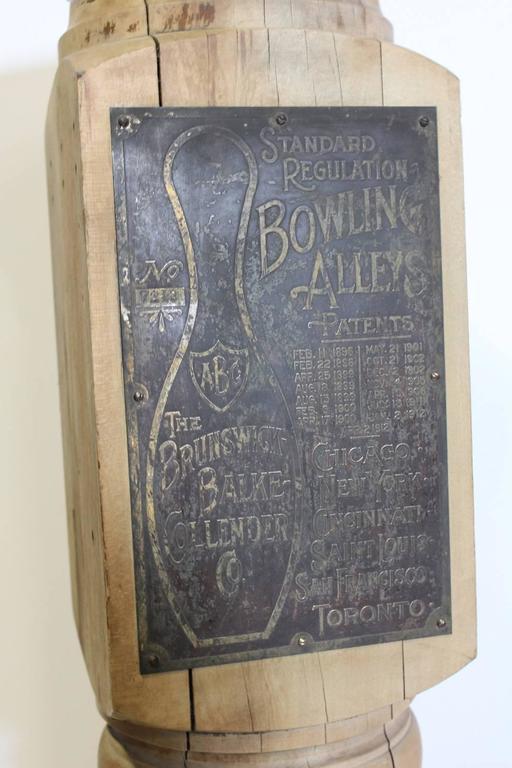 STANDARD
REGULATION
BOWLING
ALLEYS
No
PATENTS
FEB. 11 1896 MAY. 21 1901
FEB. 22 1898 OCT. 21 1902
APR. 25 1898 1902
1899
AUG. 1899
1900
APR. 17 1900 2 1912
2 1912
ABC
THE
BRUNSWICK
BALKE-
COLLENDER
CO.
CHICAGO
NEW YORK
CINCINNATI
SAINT LOUIS
SAN FRANCISCO
TORONTO